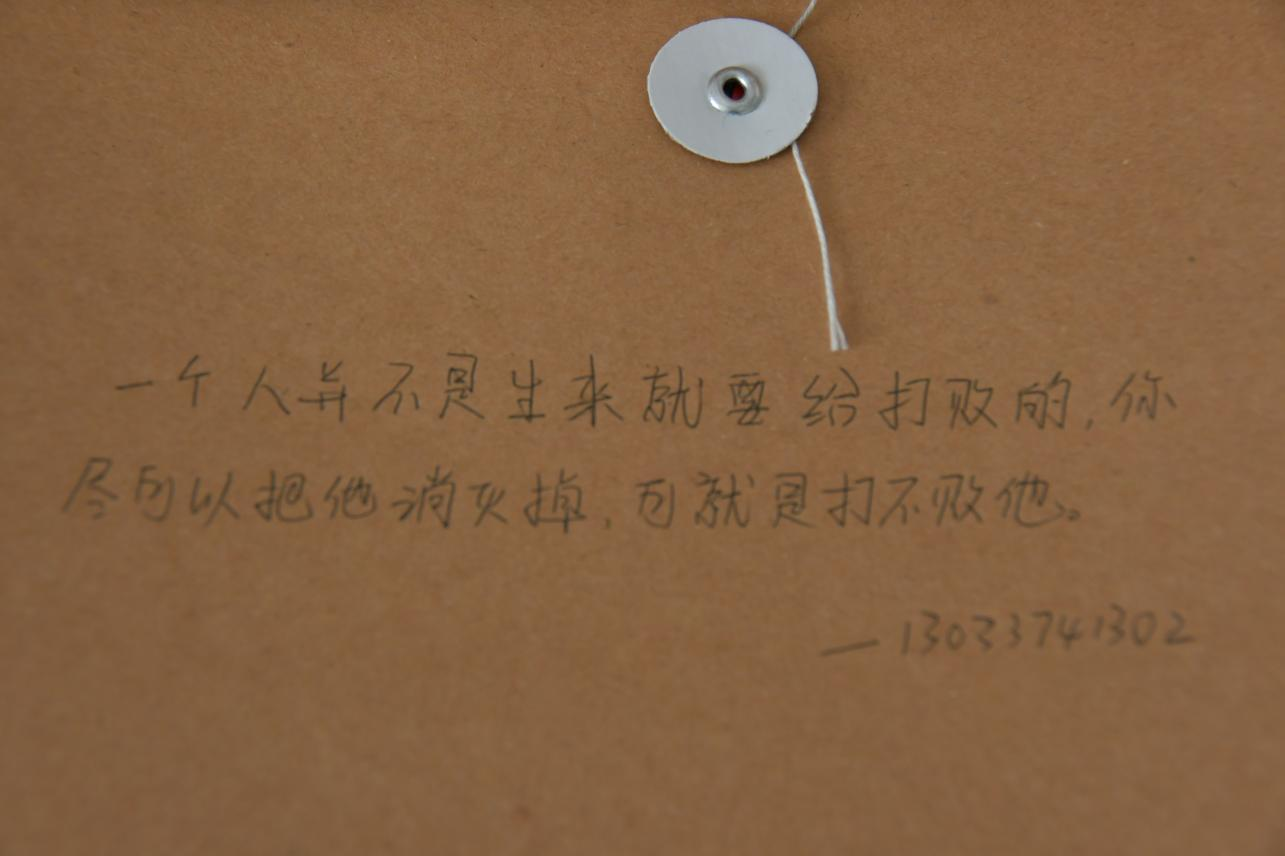 一个人并不是生来就要给打败的,你
尽可以把他消灭掉,可就是打不败他。
—13033741302